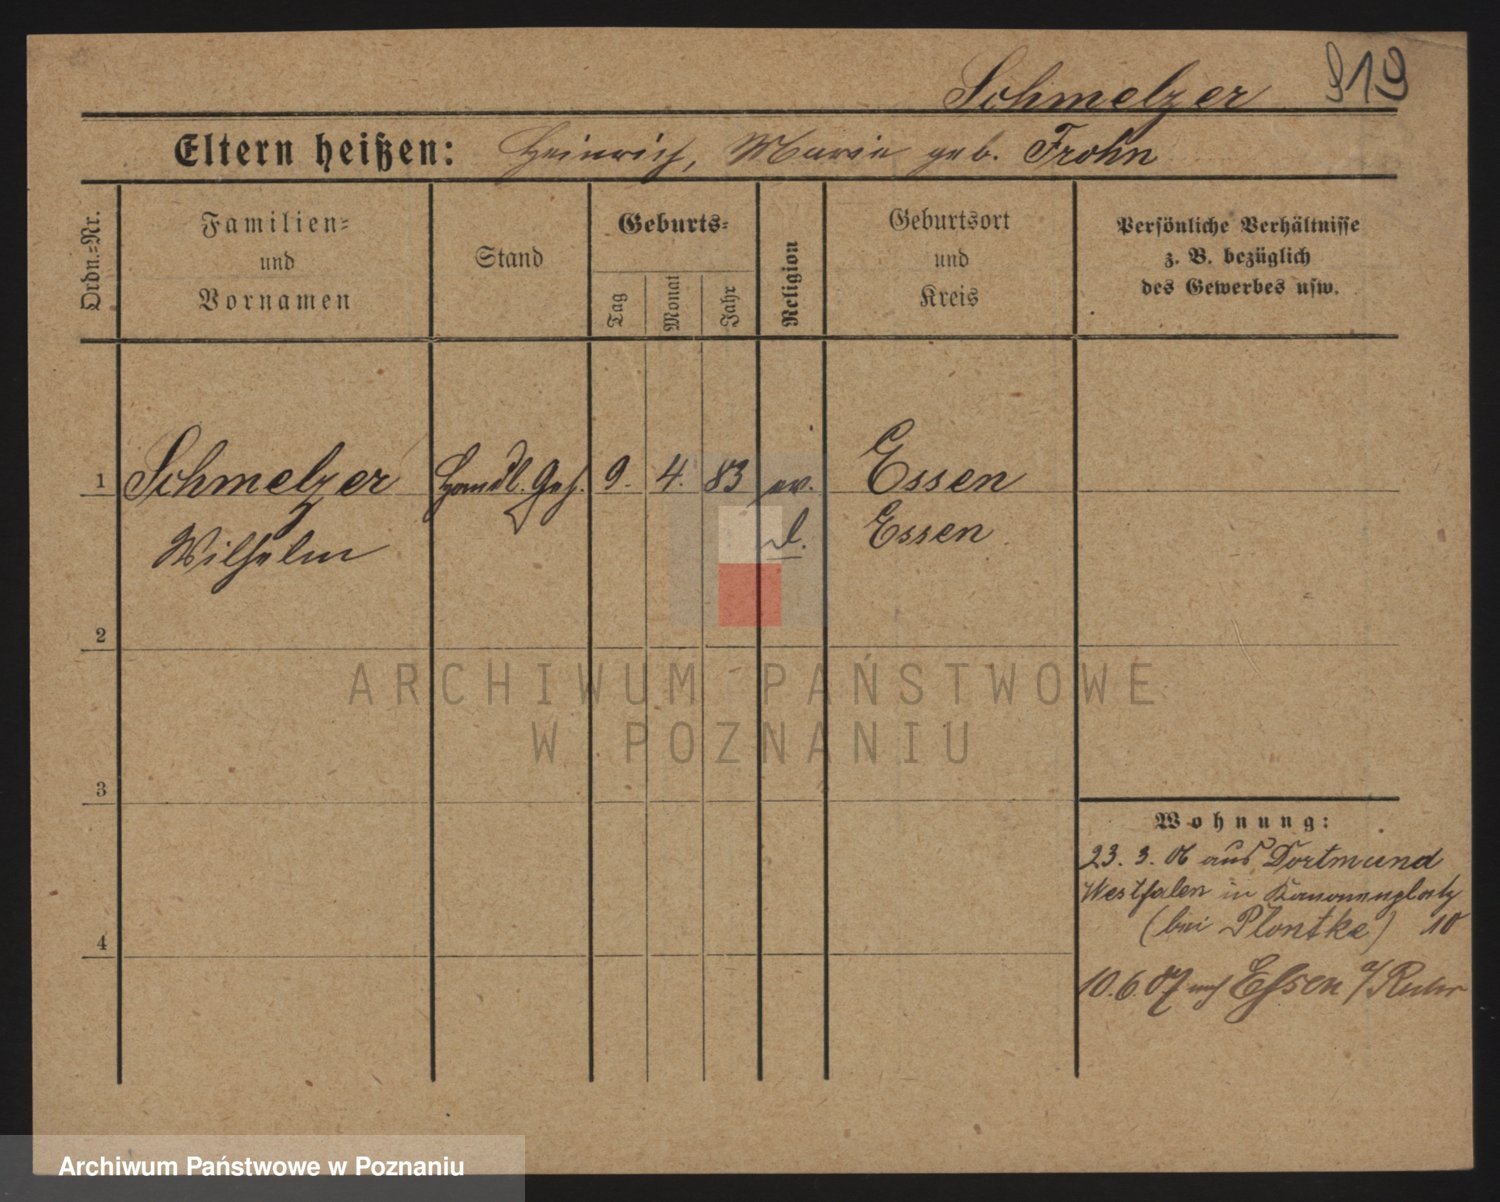 Schmelzer 919
Eltern heißen: Heinrich, Marie geb. Frohn
Ordn.-Nr.
Familien-
und
Vornamen
Stand
Geburts-
Tag
Monat
Jahr
Religion
Geburtsort
und
Kreis
Persönliche Verhältnisse
z. B. bezüglich
des Gewerbes usw.
1 Schmelzer Handl. Geh. 9. 4. 83 ev. Essen
Wilhelm d. Essen
2
ARCHIWUM PAŃSTWOWE
W POZNANIU
3
Wohnung:
23. 3. 06 aus Dortmund
Westfalen in Kanonenplatz
(bei Plontke) 10
4
10. 6. 07 nach Essen a/Ruhr
Archiwum Państwowe w Poznaniu